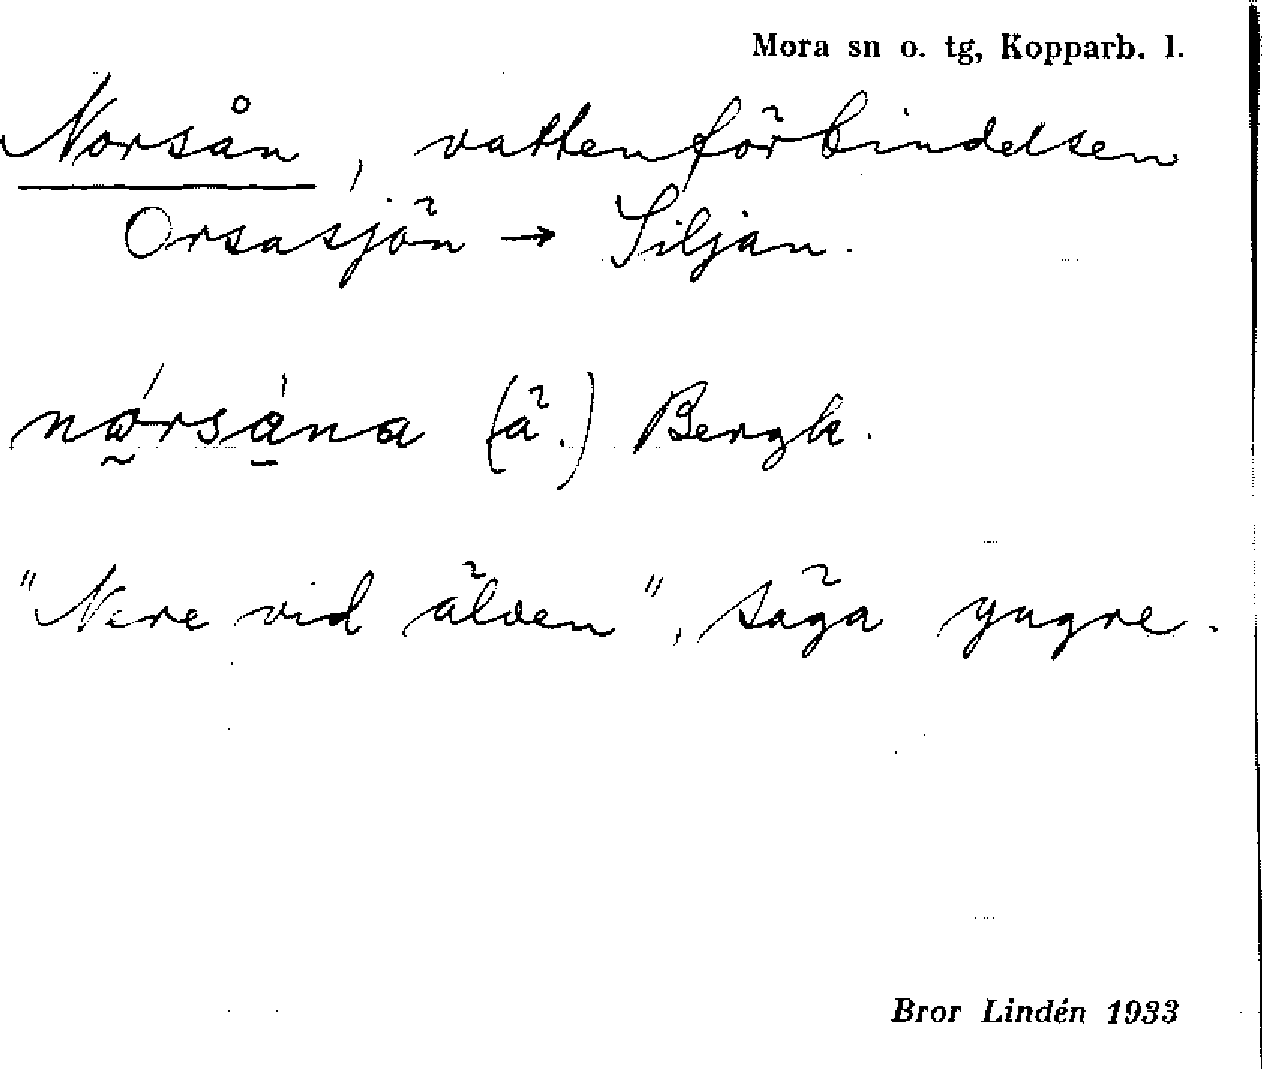 Mora sn o. tg, Kopparb. l.
Norsån, vattenförbindelsen
Orsasjön → Siljan.
nǫ́rsą́na (ä.) Bergk.
"Nere vid älven", säga yngre.
Bror Lindén 1933